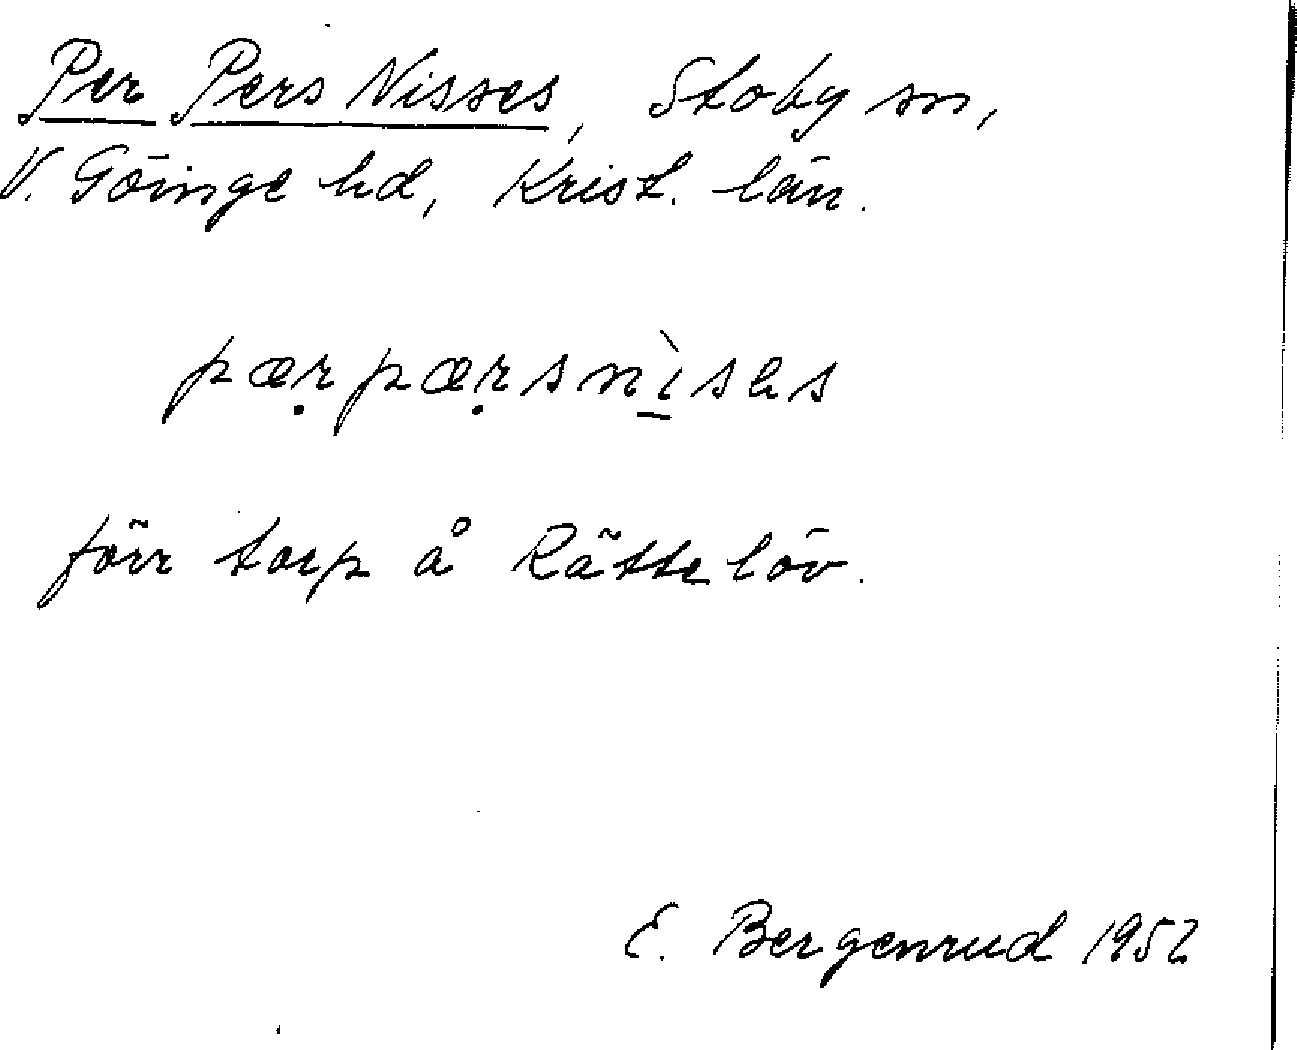 Per Pers Nisses, Stoby sn,
V. Göinge hd, Krist. län.
pæṛpæṛsnì̠səs
förr torp å Rättelöv.
E. Bergenrud 1952